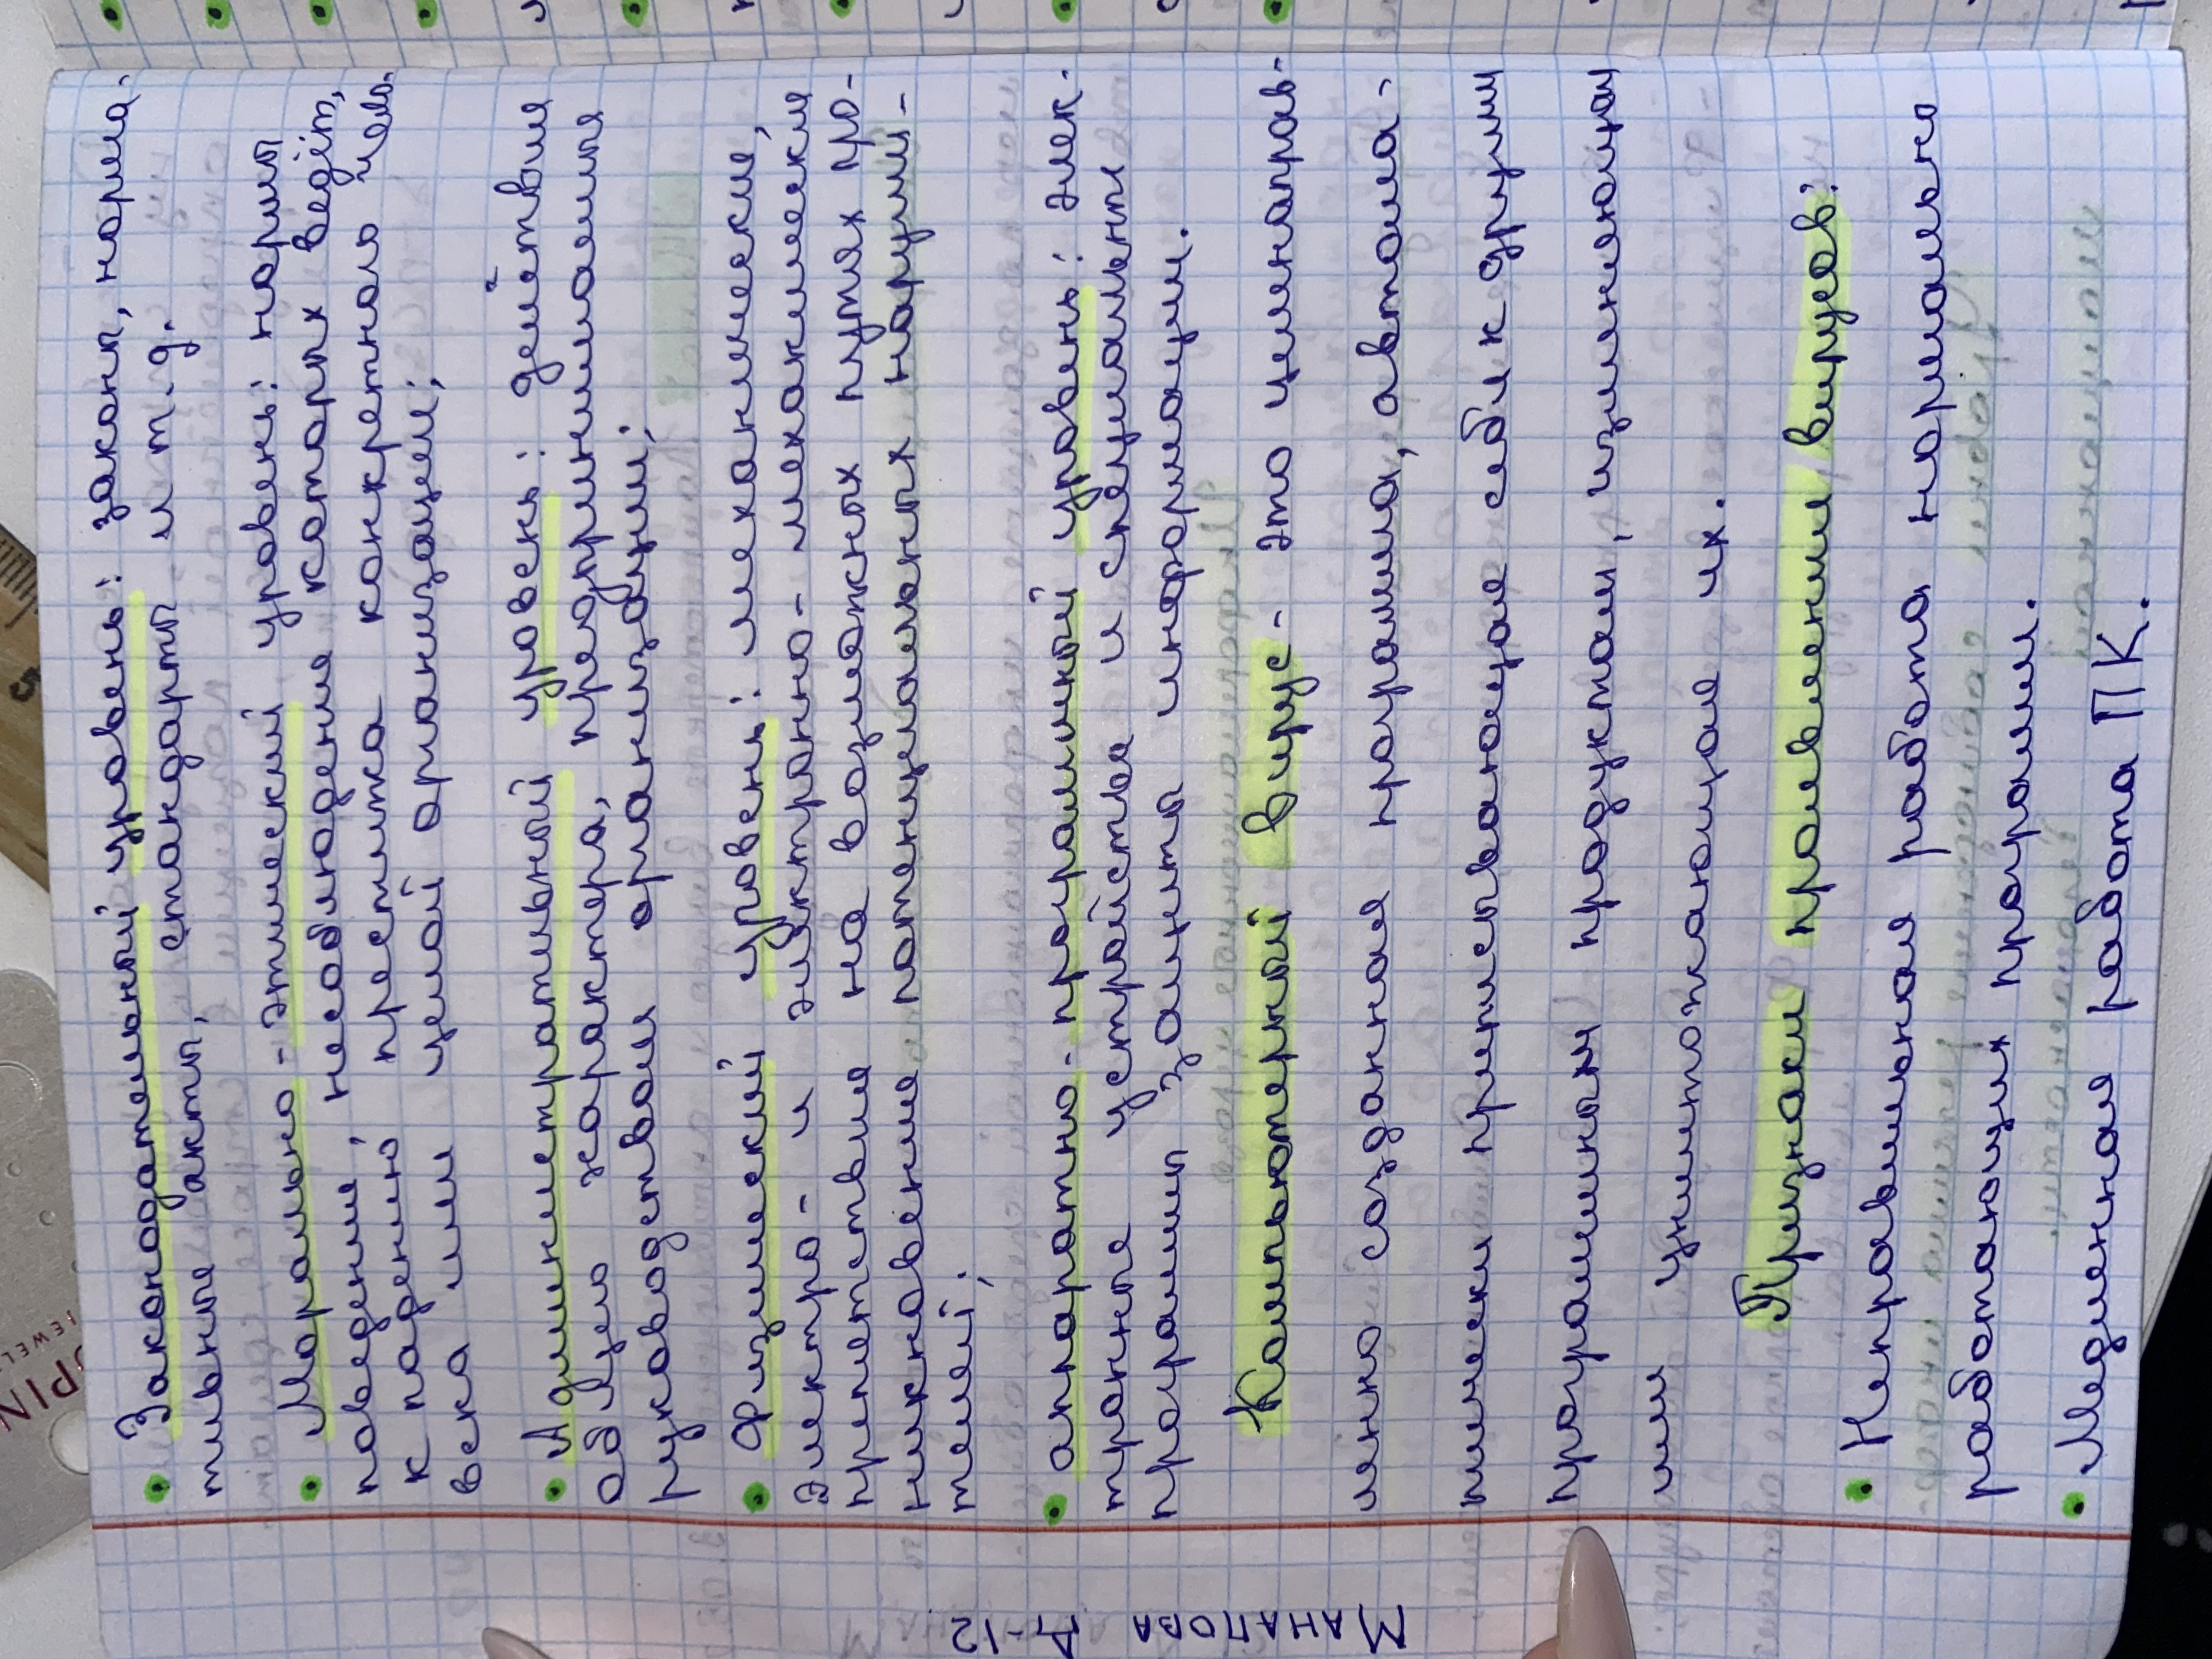 • Законодательный уровень: законы, норма-
тивные акты, стандарты и т.д.
• Морально-этический уровень: нормы
поведения, несоблюдение которых ведёт
к падению престижа конкретного чело-
века или целой организации;
• Административный уровень: действия
общего характера, предпринимаемые
руководством организации;
• Физический уровень: механические,
электро- и электронно-механические
препятствия на возможных путях про-
никновения потенциальных наруши-
телей;
• аппаратно-программный уровень: элек-
тронные устройства и специальные
программы защиты информации.
Компьютерный вирус - это целенаправ-
ленно созданная программа, автома-
тически приписывающая себя к другим
программным продуктам, изменяющая
или уничтожающая их.
Признаки проявления вирусов:
• Неправильная работа нормально
работающих программ.
• Медленная работа ПК.
МАНАПОВА Д-12
5